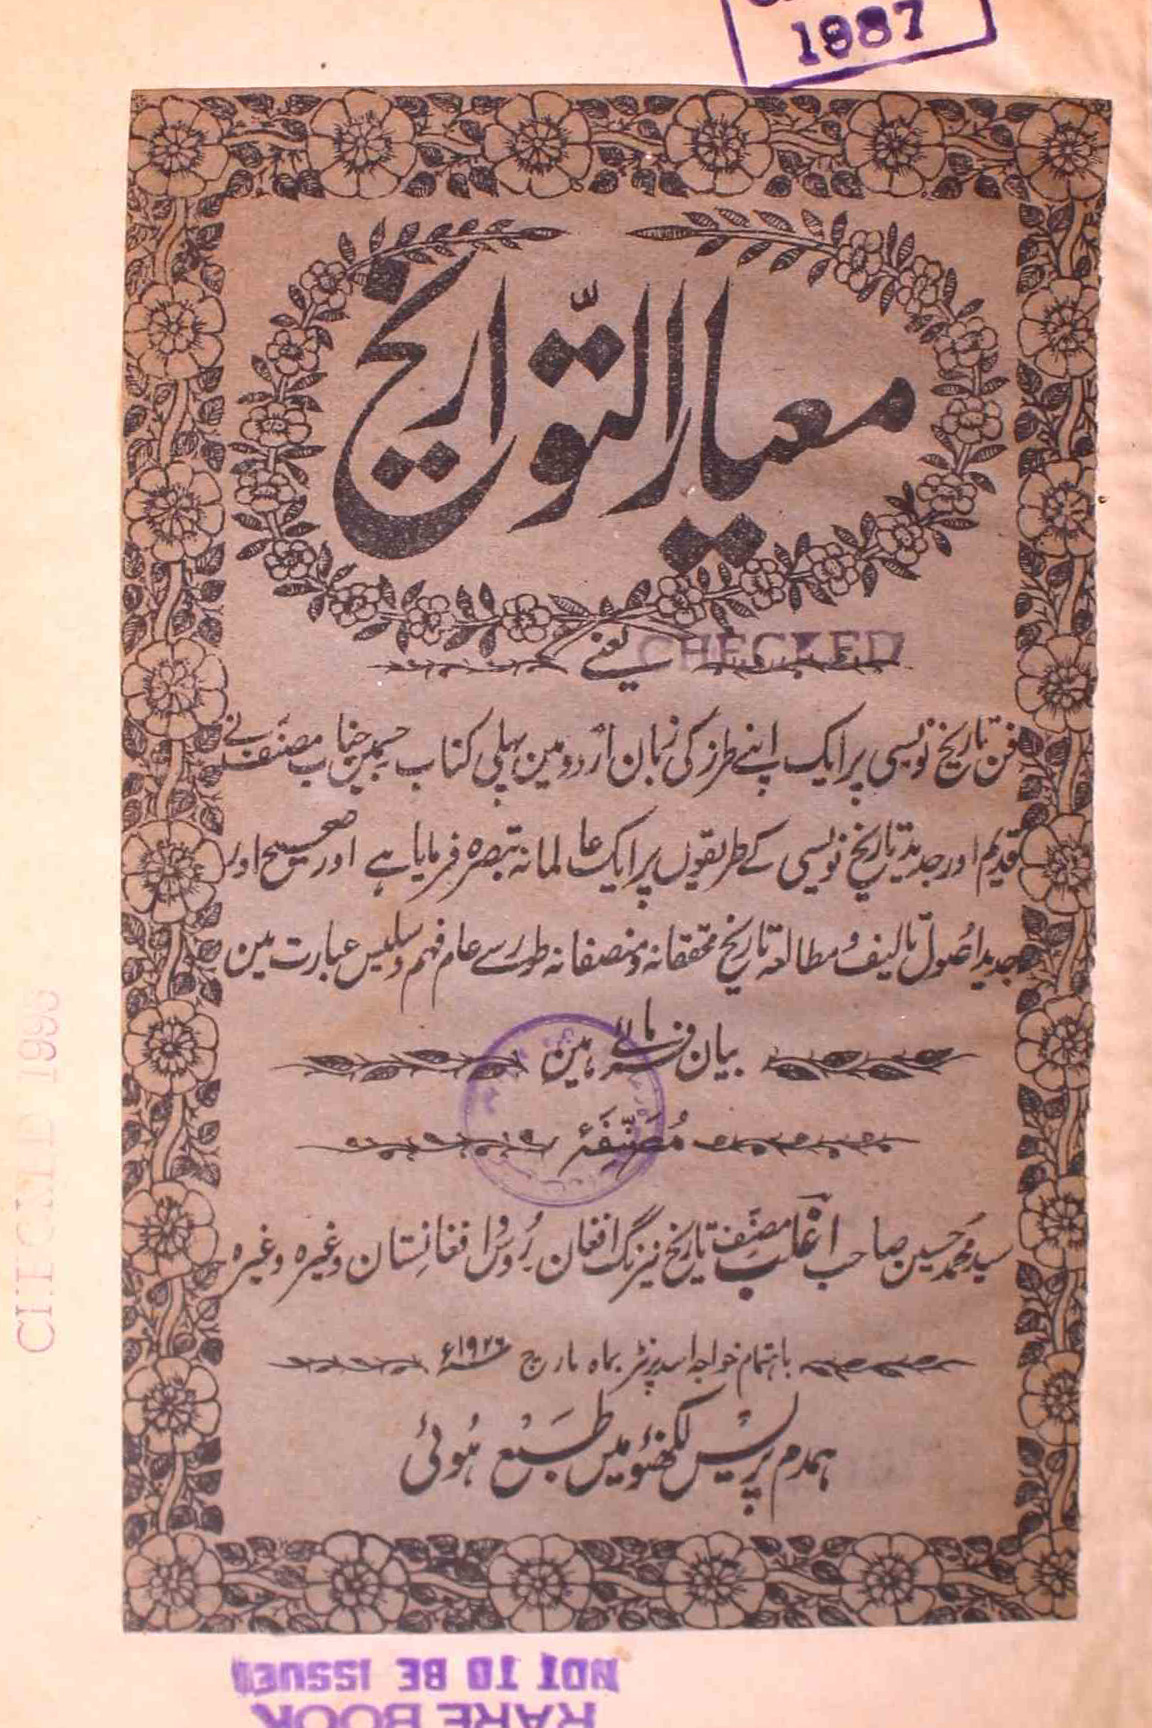 1987
معیار التّواریخ
یعنے
CHECKED
فن تاریخ نویسی پر ایک اپنے طرز کی زبان اُردو مین پہلی کتاب جسمین جناب مصنّف نے
قدیم اور جدید تاریخ نویسی کے طریقوں پر ایک عالمانہ تبصرہ فرمایا ہے اور صحیح اور
جدید اُصول تالیف و مطالعہ تاریخ محققانہ و منصفانہ طور سے عام فہم و سلیس عبارت مین
بیان فرمائے ہین
مُصَنّفَہٗ
سید محمد حسین صاحب اغلب مصنّف تاریخ نیرنگ افغان رُوس افغانِستان وغیرہ وغیرہ
باہتمام خواجہ اسد پرنٹر بماہ مارچ ۱۹۲۶ء
ہمدم پریس لکھنؤ میں طبع ہُوئی
CHECKED 1995
NOT TO BE ISSUED
RARE BOOK